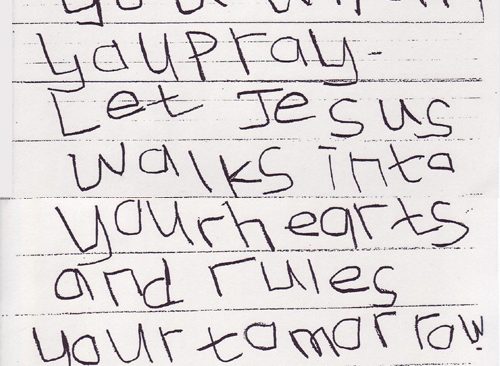 you pray-
Let Jesus
walks into
your hearts
and rules
your tomorrow